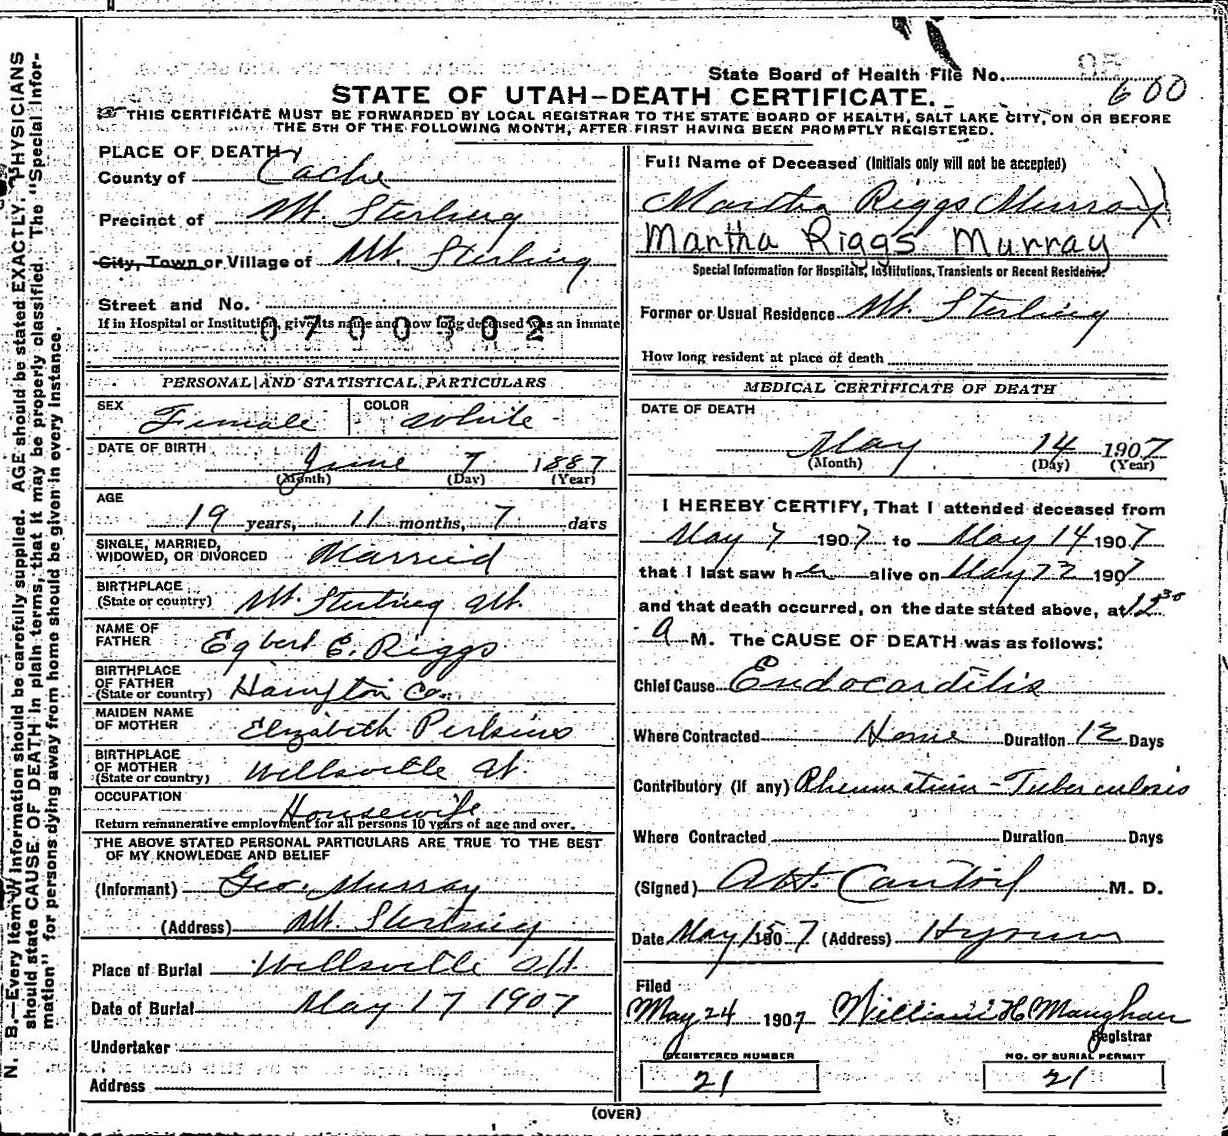 State Board of Health File No.
600
STATE OF UTAH—DEATH CERTIFICATE.
THIS CERTIFICATE MUST BE FORWARDED BY LOCAL REGISTRAR TO THE STATE BOARD OF HEALTH, SALT LAKE CITY, ON OR BEFORE
THE 5TH OF THE FOLLOWING MONTH, AFTER FIRST HAVING BEEN PROMPTLY REGISTERED.
PLACE OF DEATH
County of Cache
Precinct of Mt. Sterling
City, Town or Village of Mt. Sterling
Street and No.
If in Hospital or Institution, give its name and how long deceased was an inmate
0700702
PERSONAL AND STATISTICAL PARTICULARS
SEX Female COLOR White
DATE OF BIRTH June 7 1887
(Month) (Day) (Year)
AGE
19 years, 11 months, 7 days
SINGLE, MARRIED,
WIDOWED, OR DIVORCED Married
BIRTHPLACE
(State or country) Mt. Sterling Ut.
NAME OF
FATHER Egbert E. Riggs
BIRTHPLACE
OF FATHER
(State or country) Hampton Co.
MAIDEN NAME
OF MOTHER Elizabeth Perkins
BIRTHPLACE
OF MOTHER
(State or country) Wellsville Ut.
OCCUPATION Housewife
Return remunerative employment for all persons 10 years of age and over.
THE ABOVE STATED PERSONAL PARTICULARS ARE TRUE TO THE BEST
OF MY KNOWLEDGE AND BELIEF
(Informant) Geo. Murray
(Address) Mt. Sterling
Place of Burial Wellsville Ut.
Date of Burial May 17 1907
Undertaker
Address
Full Name of Deceased (Initials only will not be accepted)
Martha Riggs Murray
Martha Riggs Murray
Special Information for Hospitals, Institutions, Transients or Recent Residents.
Former or Usual Residence Mt. Sterling
How long resident at place of death
MEDICAL CERTIFICATE OF DEATH
DATE OF DEATH
May 14 1907
(Month) (Day) (Year)
I HEREBY CERTIFY, That I attended deceased from
May 7 1907 to May 14 1907
that I last saw her alive on May 1907
and that death occurred, on the date stated above, at 12 30
A M. The CAUSE OF DEATH was as follows:
Chief Cause Endocarditis
Where Contracted Home Duration 12 Days
Contributory (if any) Rheumatism - Tuberculosis
Where Contracted Duration Days
(Signed) M. D.
Date May 15 1907 (Address) Hyrum
Filed
May 24 1907 William H Maughan
Registrar
REGISTERED NUMBER
21
NO. OF BURIAL PERMIT
21
(OVER)
N. B.—Every item of information should be carefully supplied. AGE should be stated EXACTLY. PHYSICIANS
should state CAUSE OF DEATH in plain terms, that it may be properly classified. The "Special Infor-
mation" for persons dying away from home should be given in every instance.